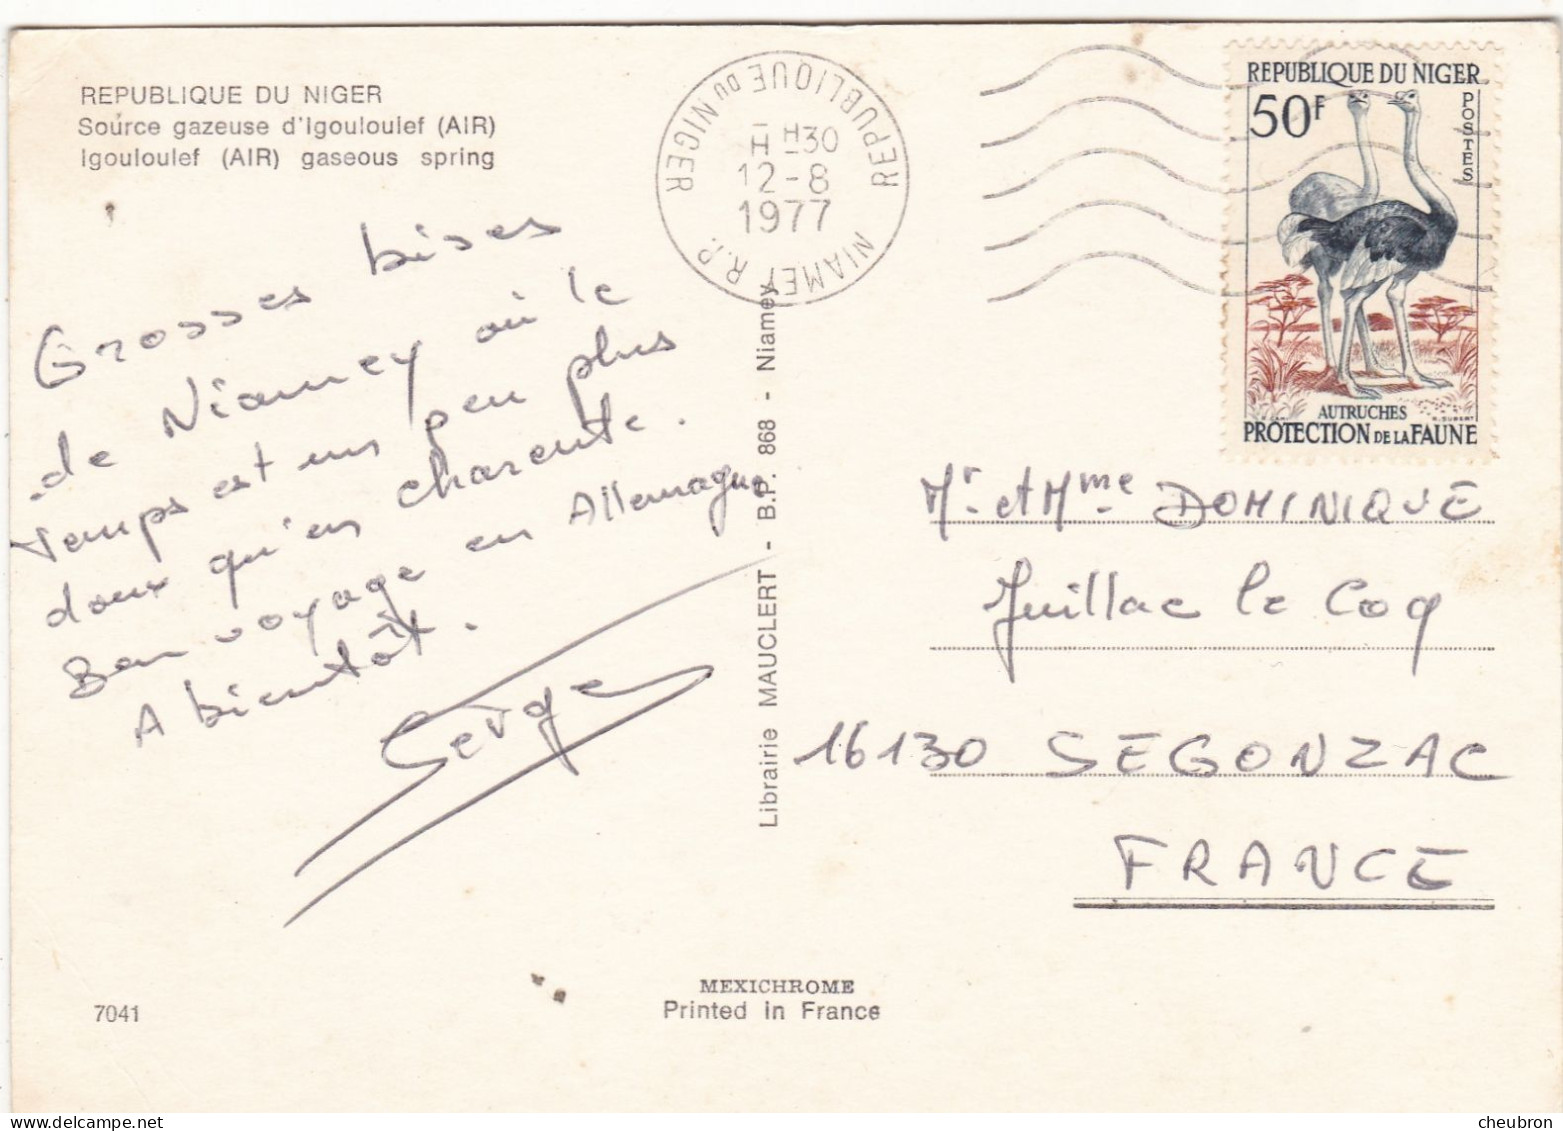 REPUBLIQUE DU NIGER
Source gazeuse d'Igouloulef (AIR)
Igouloulef (AIR) gaseous spring
Grosses bises
de Niamey où le
temps est un peu plus
doux qu'en charente.
Bon voyage en Allemagne
A bientôt.
Serge
Librairie MAUCLERT - B.P. 868 - Niamey
REPUBLIQUE DU NIGER
H30
12-8
1977
NIAMEY R.P.
REPUBLIQUE DU NIGER
50F
POSTES
AUTRUCHES
PROTECTION DE LA FAUNE
Mr et Mme DOMINIQUE
Juillac le Coq
16130 SEGONZAC
FRANCE
7041
MEXICHROME
Printed in France
cheubron